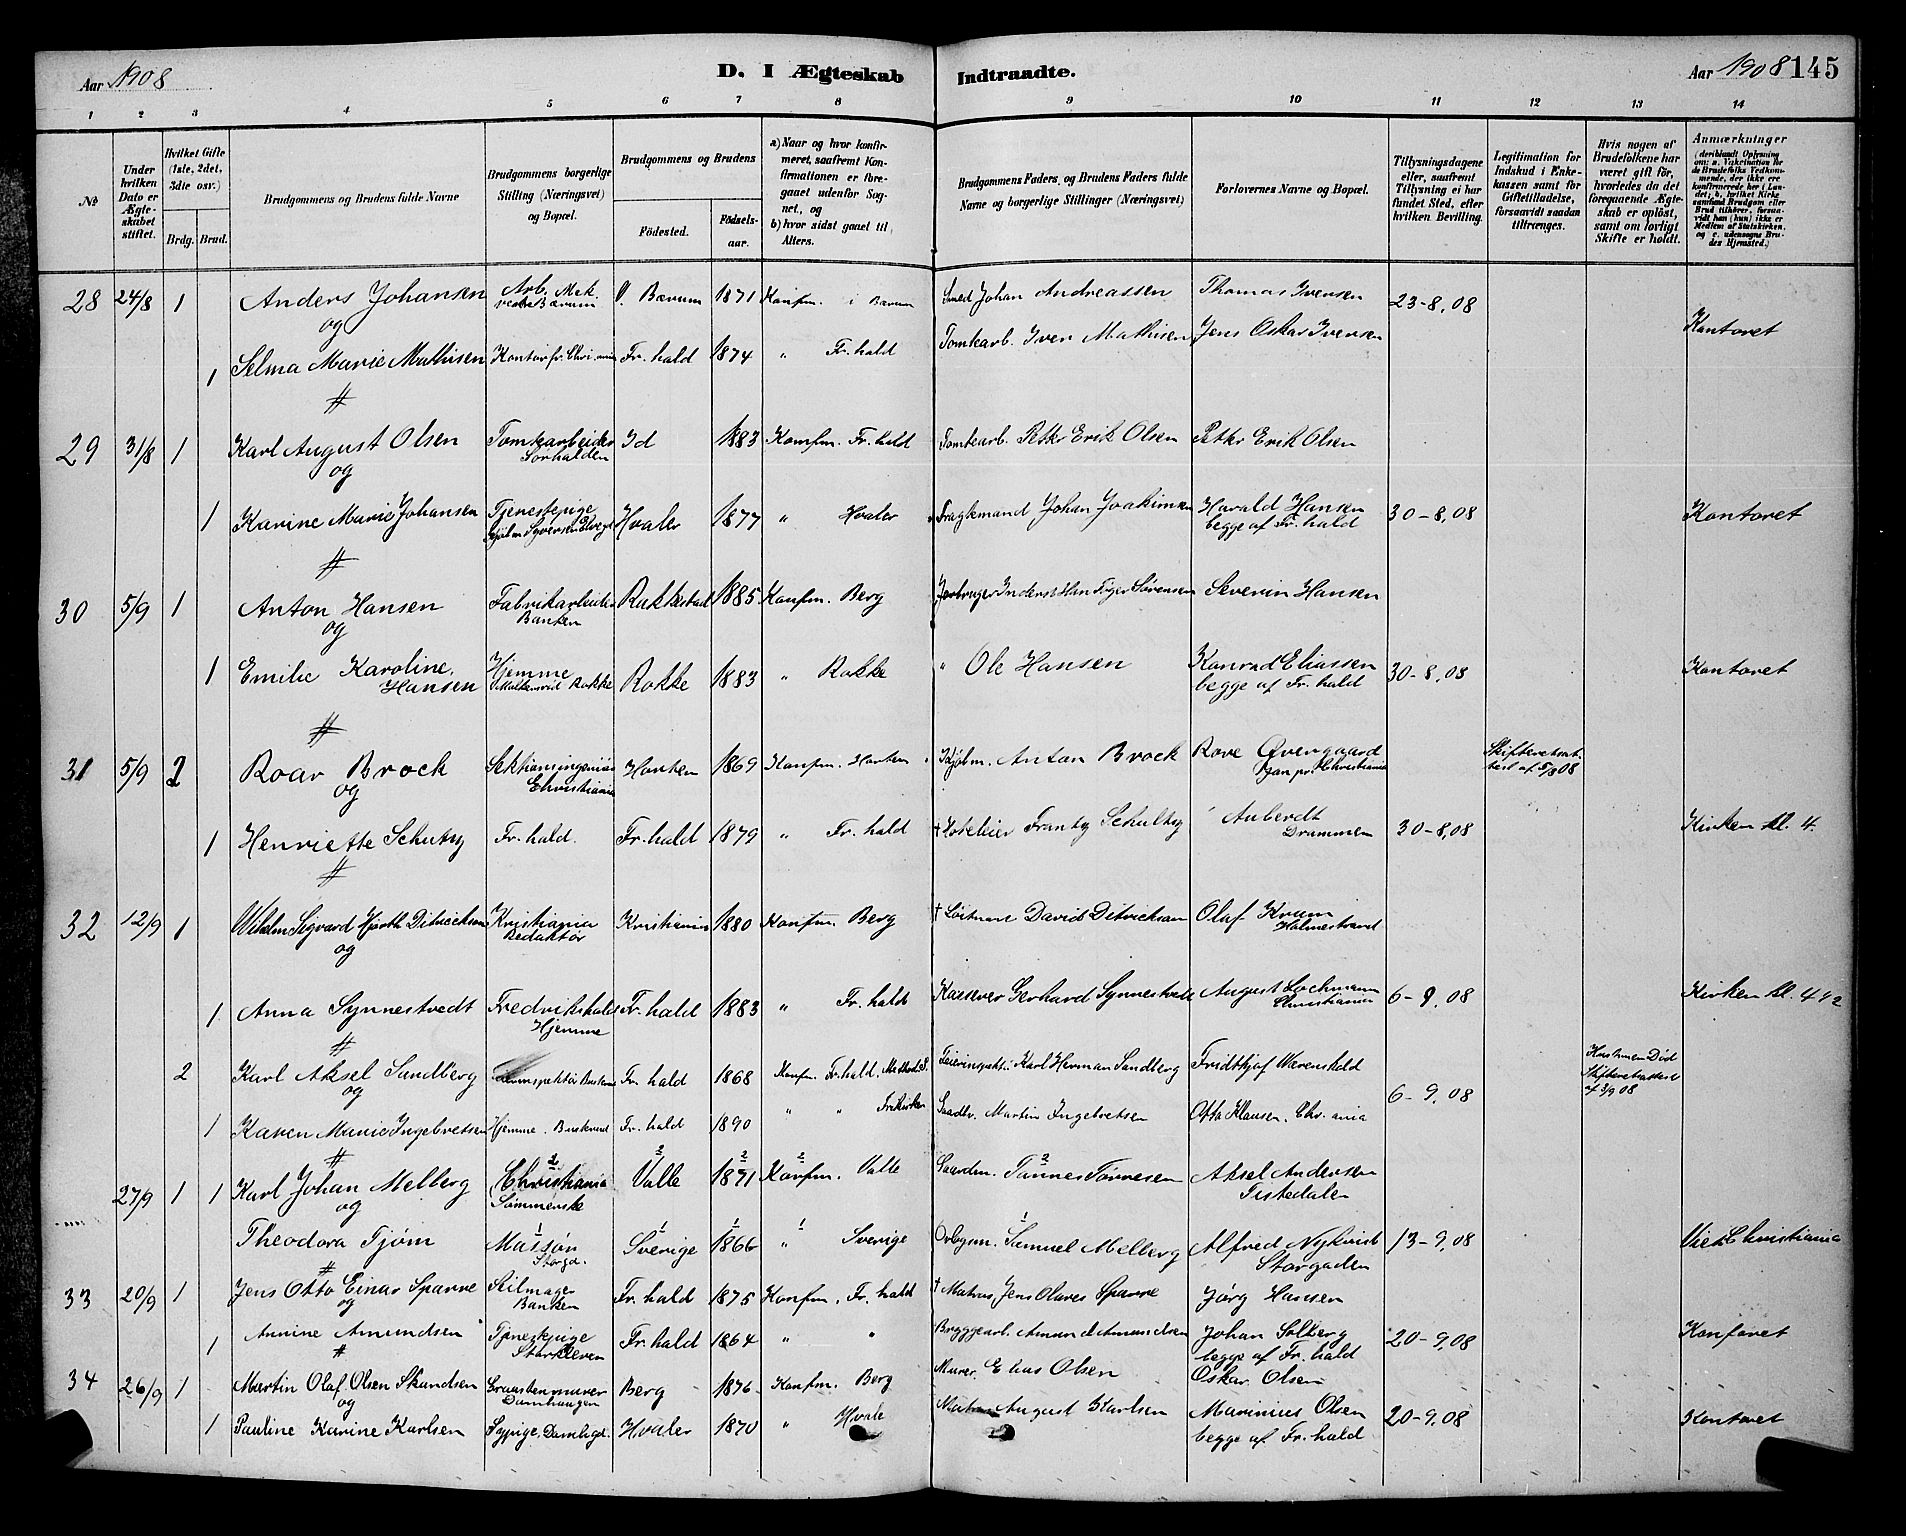 Aar 1908
D. I Ægteskab Indtraadte.
Aar 1908 145
1 2 3 4 5 6 7 8 9 10 11 12 13 14
No
Under hvilken Dato er Ægteskabet stiftet.
Hvilket Gifte (1ste, 2det, 3die osv.)
Brdg. Brud.
Brudgommens og Brudens fulde Navne
Brudgommens borgerlige Stilling (Næringsvei) og Bopæl.
Brudgommens og Brudens
Fødested.
Fødselsaar.
a) Naar og hvor konfirmeret, saafremt Konfirmationen er foregaaet udenfor Sognet, og
b) hvor sidst gaaet til Alters.
Brudgommens Faders og Brudens Faders fulde Navne og borgerlige Stillinger (Næringsvei)
Forlovernes Navne og Bopæl.
Tillysningsdagene eller, saafremt Tillysning ei har fundet Sted, efter hvilken Bevilling.
Legitimation for Indskud i Enkekassen samt for Giftetilladelse, forsaavidt saadan tiltrænges.
Hvis nogen af Brudefolkene har været gift før, hvorledes da det foregaaende Ægteskab er opløst, samt om lovligt Skifte er holdt.
Anmærkninger (deriblandt Oplysning om: a. Vakcination for de Brudefolks Vedkommende, der ikke ere konfirmerede her i Landet; b. hvilket Kirkesamfund Brudgom eller Brud tilhører, forsaavidt han (hun) ikke er Medlem af Statskirken, og c. udensogns Brudes Hjemsted.)
28 24/8 1 Anders Johansen Arb. Mek. V. Bærum 1871 Konfm. i Bærum Smed Johan Andreassen Thomas Iversen 23-8,08
og
1 Selma Marie Mathisen Fr. hald 1874 " Fr. hald Tomtearb. Iver Mathisen Jens Oskar Iversen Kontoret
29 31/8 1 Karl August Olsen Tomtearbeider Sorhalden Id 1883 Konfm. Fr. hald Tomtearb. Petter Erik Olsen Petter Erik Olsen
og
1 Karine Marie Johansen Tjenestepige Hvaler 1877 " Hvaler Fragtemand Johan Joakimsen Harald Hansen begge af Fr. hald 30-8,08 Kontoret
30 5/9 1 Anton Hansen Fabrikarbeider Banken Rakkestad 1885 Konfm. Berg Severin Hansen
og
1 Emilie Karoline Hansen Hjemme Rokke Rokke 1883 " Rokke " Ole Hansen Konrad Eliassen begge af Fr. hald 30-8,08 Kontoret
31 5/9 2 Roar Brock Sektionsingeniør Christiania Horten 1869 Konfm. Horten Kjøbm. Anton Brock Christiania Skifteretsattest af 5/8 08
og
1 Henriette Schultz Fr. hald. Fr. hald 1879 " Fr. hald † Hoteleier Frantz Schultz Auberdt Drammen 30-8,08 Kirken kl. 4.
32 12/9 1 Wilhelm Sigvard Hjorth Ditrickson Kristiania Redaktør Kristiania 1880 Konfm. Berg † Løitnant David Ditrickson Olaf Krum Holmestrand
og
1 Anna Synnestvedt Fredrikshald Hjemme Fr. hald 1883 " Fr. hald Kasserer Gerhard Synnestvedt August Lochmann Christiania 6-9,08 Kirken kl. 4 1/2
2 Karl Aksel Sandberg Fr. hald 1868 Konfm. Fr. hald. Karl Herman Sandberg Fridthjof Werenskold 6-9,08 Hustruen Død Skifteretsattest af 3/9 08
og
1 Karen Marie Ingebretsen Hjemme. Fr. hald 1890 " " Frikirken Martin Ingebretsen Otto Klausen. Chr. ania
27/9 1 1 Karl Johan Melberg Christiania Valle 1871 Konfm. Valle Gaardm. Tønnes Tørresen Aksel Andersen Tistedalen
og
Theodora Tjøm Massøn Storgd. Sverige 1866 " Sverige Samuel Melberg Alfred Nykvist Storgaden 13-9,08 Christiania
33 20/9 1 Jens Otto Einar Sparre Seilmager Banken Fr. hald 1875 Konfm. Fr. hald † Matros Jens Olaves Sparre Jørg Hansen
og
1 Annine Amundsen Tjenestepige Fr. hald 1864 " " Bryggearb. Amund Amundsen Johan Solberg begge af Fr. hald 20-9,08 Kontoret
34 26/9 1 Martin Olaf Olsen Skandsen Graastensmurer Damhaugen Berg 1876 Konfm. Berg Murer Elias Olsen Oskar Olsen
og
1 Pauline Karine Karlsen Sypige, Hvaler 1870 " Hvale August Karlsen Marinius Olsen begge af Fr. hald 20-9,08 Kontoret